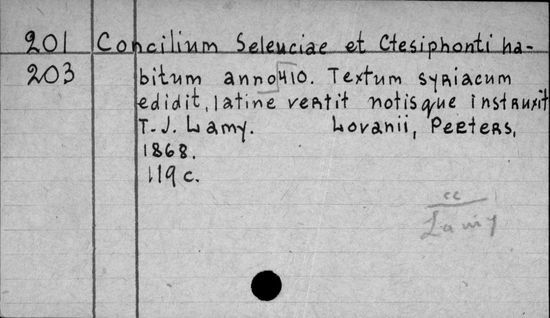 201 Concilium Seleuciae et Ctesiphonti ha-
203 bitum anno 410. Textum syriacum
edidit, latine vertit notisque instruxit
T.-J. Lamy. Lovanii, Peeters,
1868.
119 c.
cc
Lamy